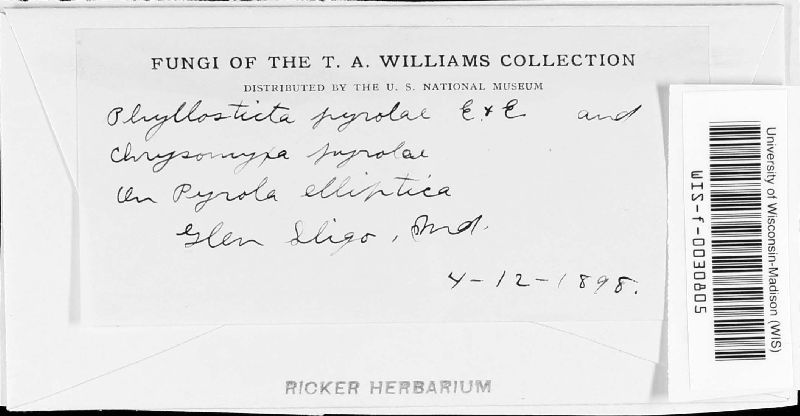 FUNGI OF THE T. A. WILLIAMS COLLECTION
DISTRIBUTED BY THE U. S. NATIONAL MUSEUM
Phyllosticta pyrolae E & E and
Chrysomyxa pyrolae
On Pyrola elliptica
Glen Sligo, Md.
4-12-1898.
RICKER HERBARIUM
University of Wisconsin-Madison (WIS)
WIS-f-0030805